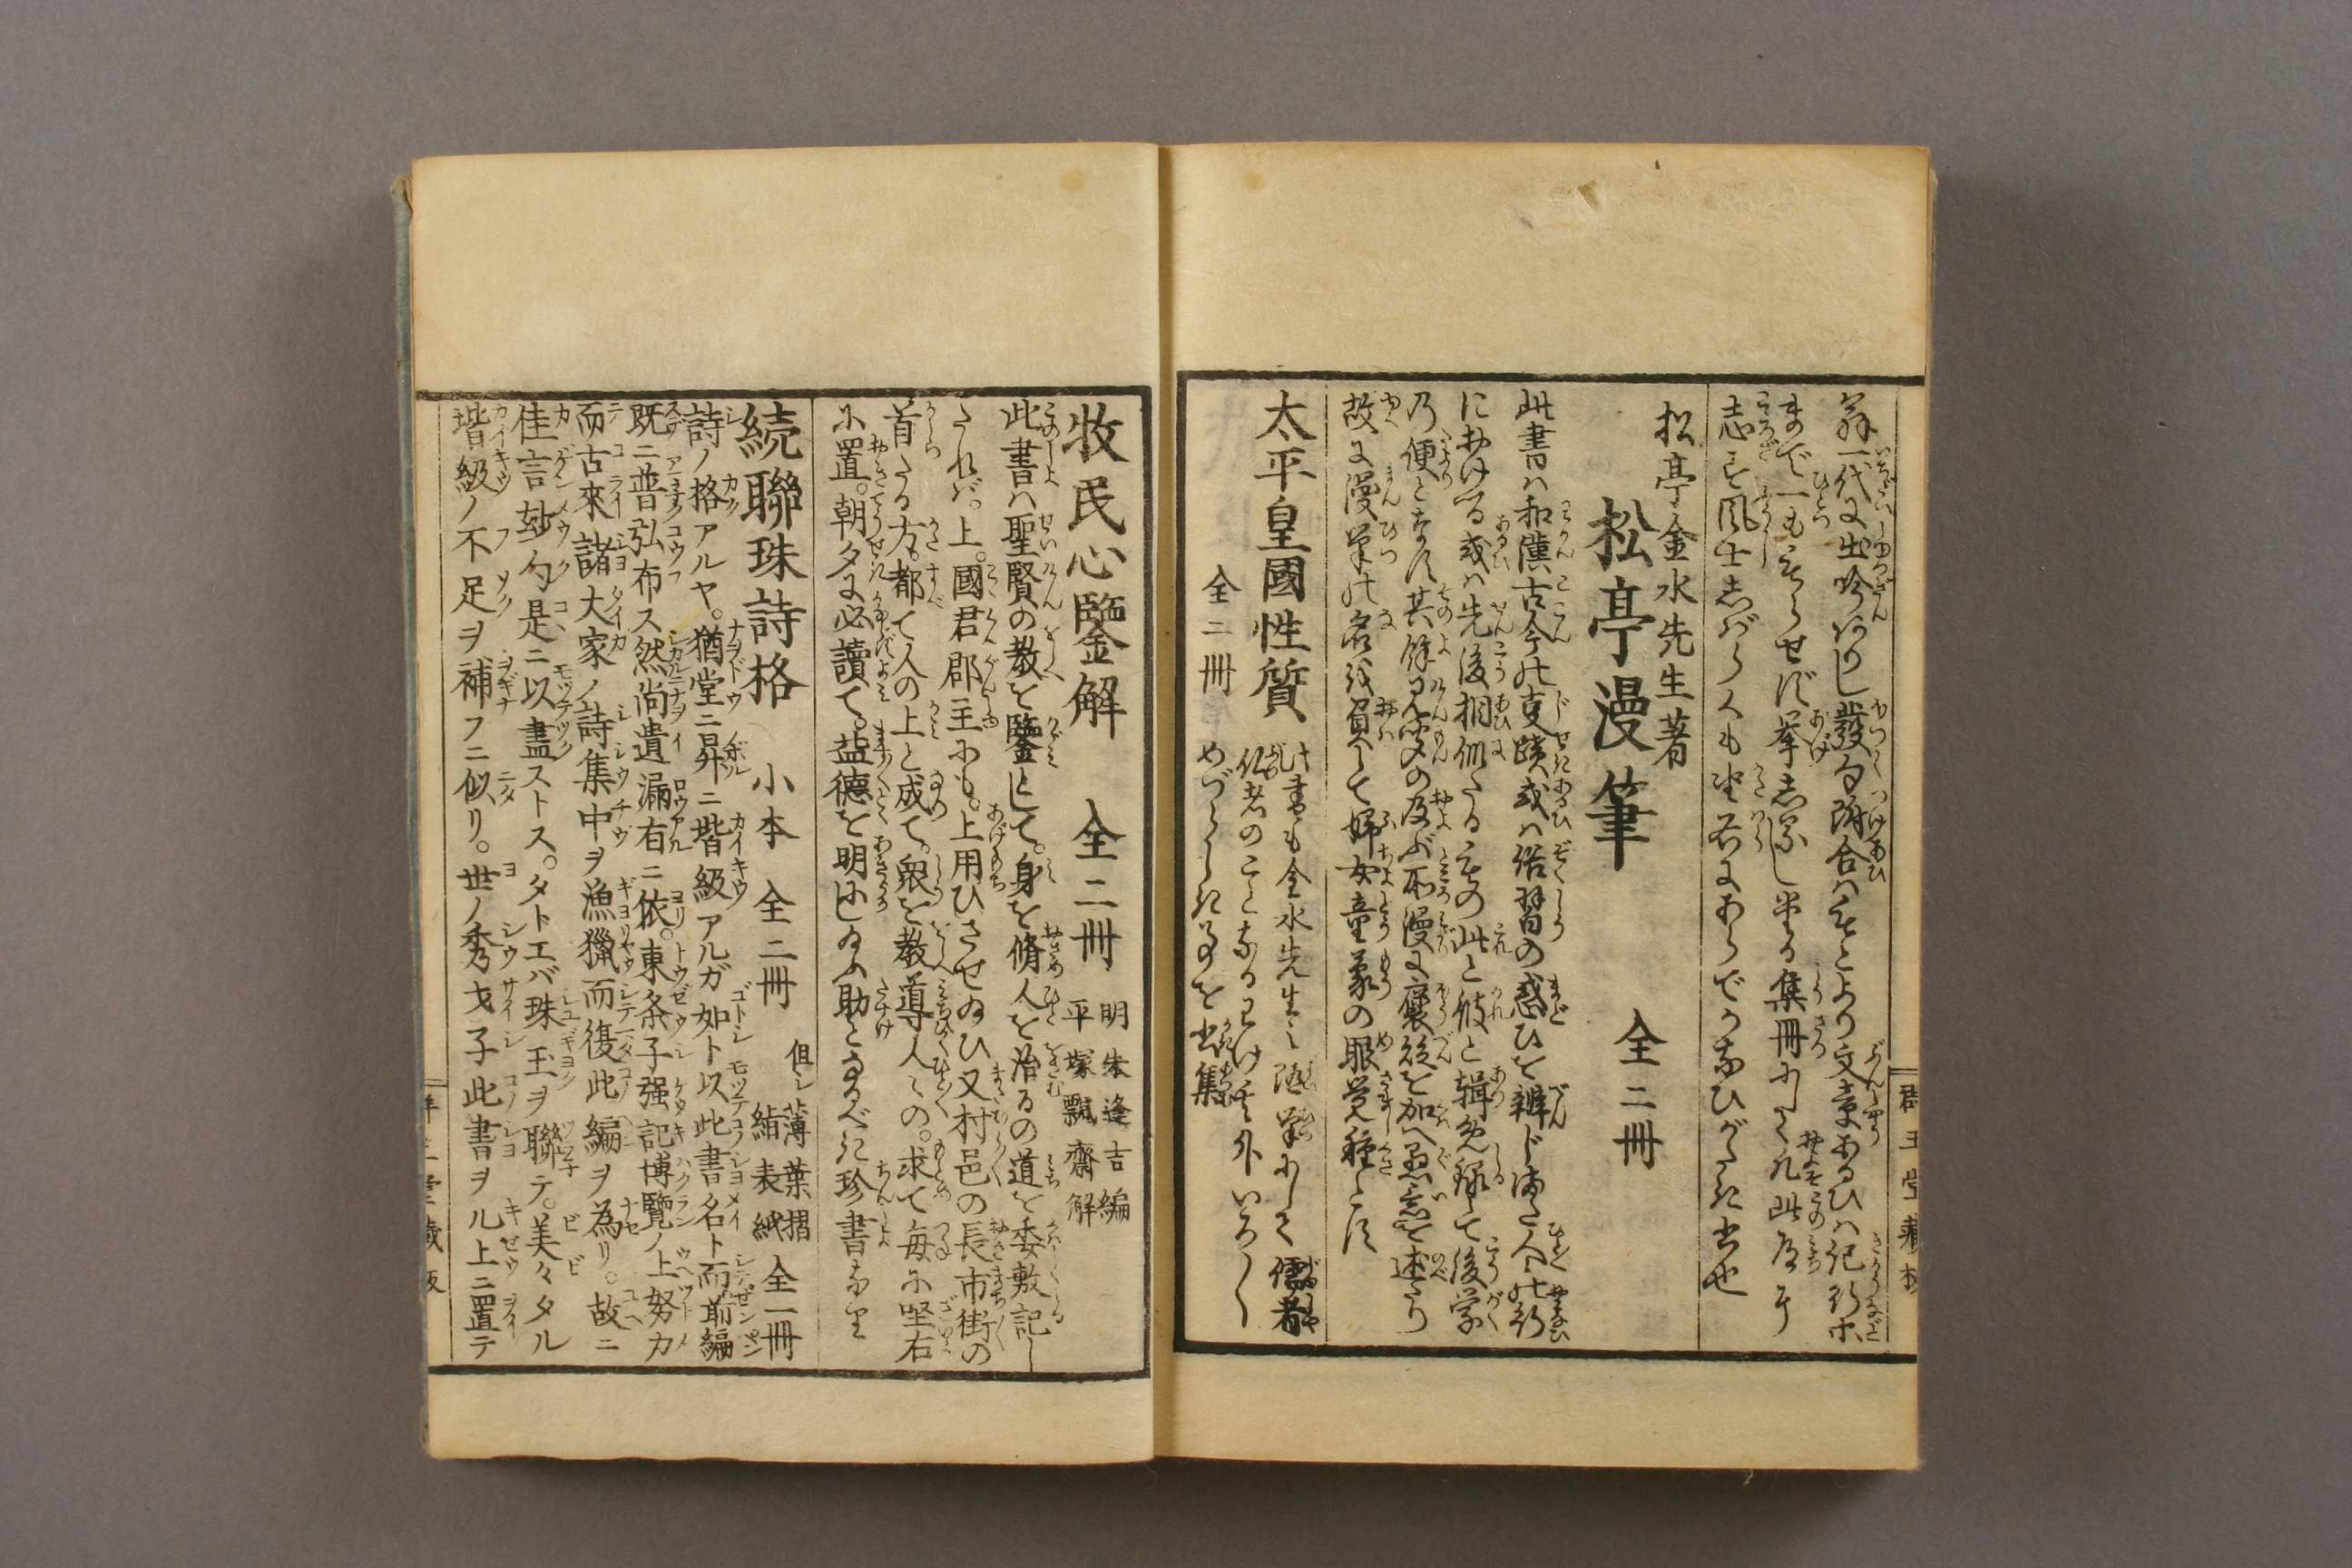 翁一代に出吟ありし發句附合はもとより文章あるひは紀行等
まで一ももらせず挙志るし半る集冊にして凡此道に
志す風士志ばらくも坐右にあらでかなひがたき書也
松亭金水先生著
松亭漫筆 全二冊
此書は和漢古今の事蹟或は俗習の惑ひを辨じまた人の行
におけつる或は先後相似たるもの此と彼と輯め録して後学
乃便となす其餘見聞の及ぶ所漫に褒貶を加へ愚意を述たり
故に漫筆の名を負して婦女童蒙の眼覚種とす
太平皇國性質 全二冊
此書も金水先生の随筆にして儒者
仏者のことなるわけ其外いろ〳〵
めづらしき事を書集
群玉堂藏板
牧民心鑒解 全二冊
明朱逢吉編
平塚飄齋解
此書ハ聖賢の教を鑒として。身を脩人を治るの道を委敷記し
たれバ。上。國君郡主にも。上用ひさせ給ひ又村邑の長市街の
首たる方も都て人の上と成て。衆を教導人〻の。求て毎に坐右
に置。朝夕に必讀て。益德を明にし給ふ助となるべき珍書なり
続聯珠詩格 小本 全二冊
但シ薄葉摺
紺表紙 全一冊
詩ノ格アルヤ。猶堂ニ昇ニ堦級アルガ如ト以此書名ト而前編
既ニ普弘布ス然尚遺漏有ニ依。東条子强記博覽ノ上努力
而古來諸大家ノ詩集中ヲ漁獵而復此編ヲ為リ。故ニ
佳言玅句是ニ以盡ストス。タトエバ珠玉ヲ聯テ。美々タル
堦級ノ不足ヲ補フニ似リ。世ノ秀才子此書ヲ几上ニ置テ
群玉堂藏板